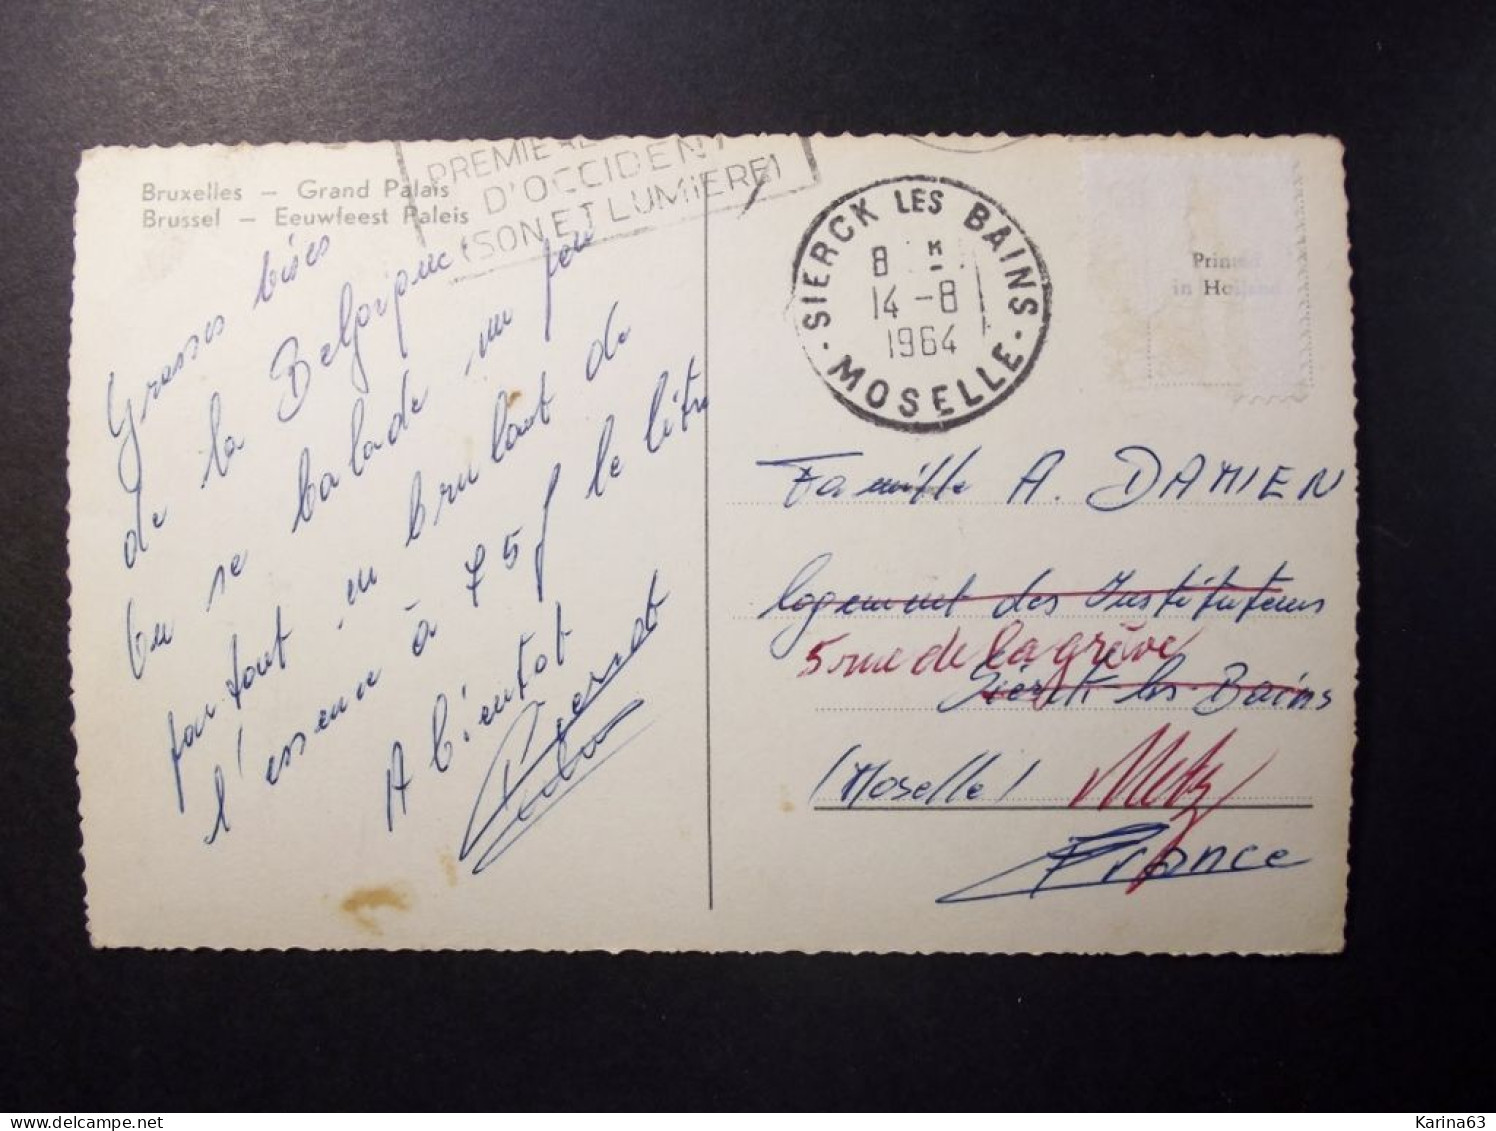 Bruxelles — Grand Palais
Brussel — Eeuwfeest Paleis
D'OCCIDENT
(SON ET LUMIERE)
SIERCK LES BAINS
8 H
14 - 8
1964
MOSELLE
Printed
in Holland
Grosses bises
de la Belgique
On se balade un peu
partout en brulant de
l'essence à 75f le litre
A bientot
Famille A. DAMIEN
logement des Instituteurs
5 rue de la grève
Sierck les Bains
(Moselle) Metz
France
Karina63
delcampe.net